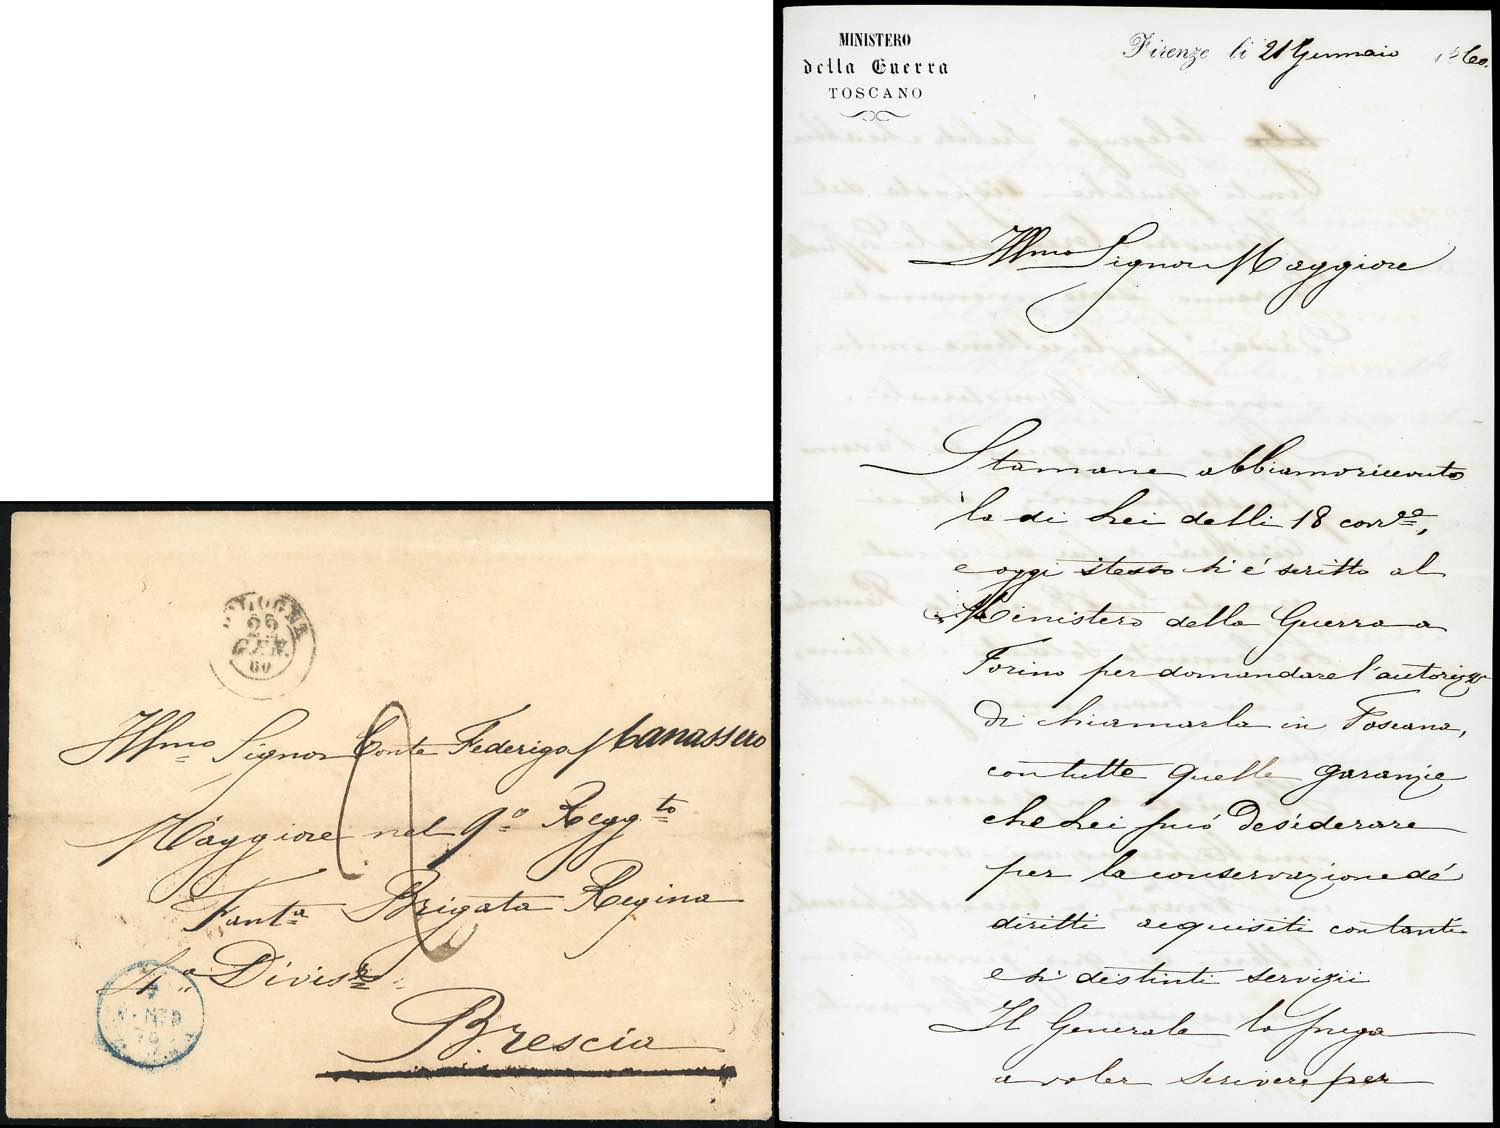 BOLOGNA
22
GEN.
60
Illmo Signor Conte Federigo Manassero
Maggiore nel 9.º Regg.to
Fant.a Brigata Regina
4.a Divis.e
Brescia
MINISTERO
della Guerra
TOSCANO
Firenze li 21 Gennaio 1860.
Illmo Signor Maggiore
Stamane abbiamo ricevuto
la di Lei delli 18 corr.e,
e oggi stesso si é scritto al
Ministero della Guerra a
Torino per domandare l'autorizz.e
di chiamarla in Toscana,
con tutte quelle garanzie
che Lei può desiderare
per la conservazione dé
diritti acquisiti con tanti
e sì distinti servizii
Il Generale la prega
a voler scrivere per